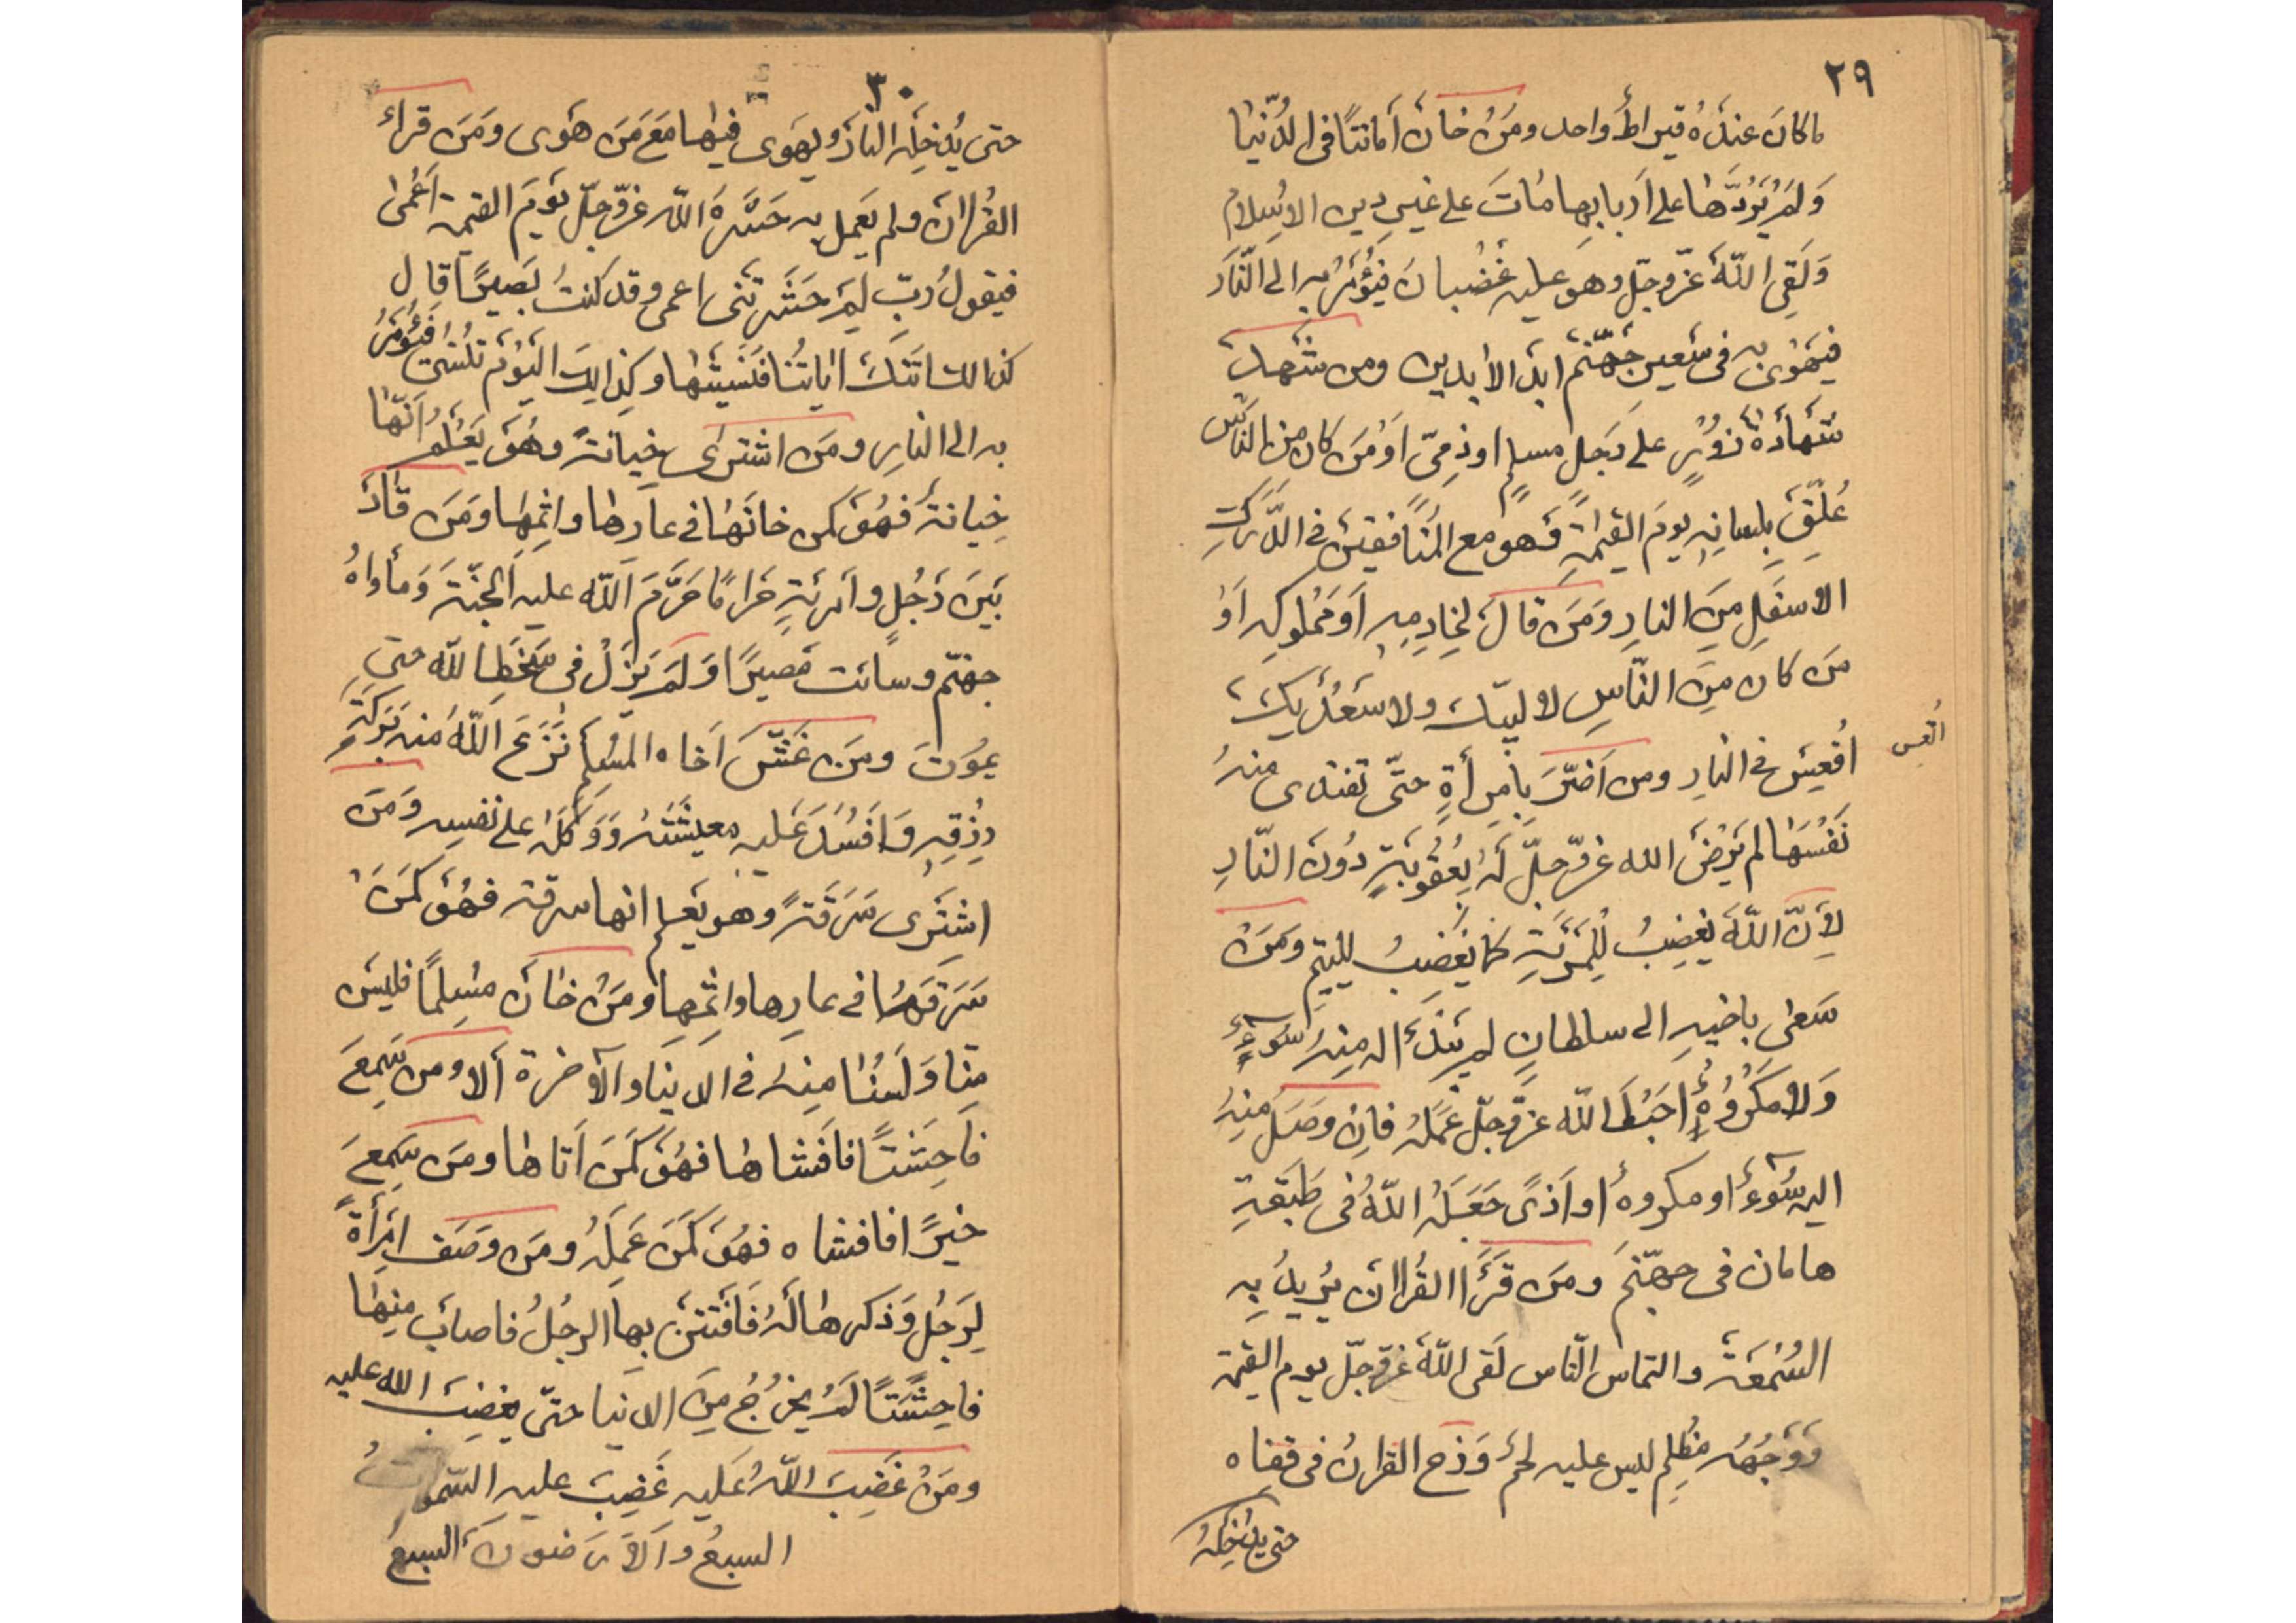 ٢٩
ما كانَ عندَهُ قيراطٌ واحد ومَنْ خانَ أمانتًا فى الدُّنيا
وَلَمْ يَرُدَّها على اَربابِها ماتَ على غيرِ دينِ الاِسلامِ
وَلَقِىَ اللّٰهَ عَزّوجلّ وهو عليه غَضْبانُ فَيُؤمَرُ به الى النّار
فيَهْوى به فى سَعيرِ جَهَنّمَ ابدَ الأبدين ومن شَهِدَ
شَهادَةَ زُوْرٍ على رَجلٍ مسلمٍ اوذِمّىٍ اَوْمَن كان من الناس
عُلّقَ بِلسانِهِ يومَ القيٰمةِ فَهو مع المُنافقينَ فى الدَّركِ
الاسفَلِ مِنَ النارِ وَمَن قالَ لِخادِمِهِ اَومَمْلوكِهِ اَوْ
مَن كان مِنَ النّاسِ لا لبيّك ولا سَعْدَيك
اُتعس
اُفعِسَ فى النارِ ومن اَضَرَّ بِامرأةٍ حتّى تفتدى منهُ
نَفْسَها لم يَرْضَ الله عزّوجلّ لَهُ بِعُقُوبَةٍ دُونَ النّارِ
لِأَنّ اللّٰهَ يَغضِبُ لِلْمَرْئَةِ كما يَغضِبُ لليتيمِ ومَنْ
سَعٰى باخيهِ الى سلطانٍ لم يَبْدَأ له مِنهُ سُوءٌ
وَلا مَكْرُوهٌ اَحْبَطَ اللّٰه عزّوجلّ عَمَلَهُ فاِن وصَلَ منهُ
اليه سُوءٌ او مكروهٌ او اَذىً جَعَلَهُ اللّٰهُ فى طَبَقةِ
هامان فى جهنّمَ ومَن قَرَأَ القُراٰنَ يُريدُ بِهِ
السُمْعَةَ والتماس النّاس لَقى اللّٰهَ عزّوجلّ يوم القيمة
وَوَجْهُهُ مُظلِم ليس عليه لحمٌ وَزخ القراٰنُ فى قفاه
حتى يُدْخِلَهُ
٣٠
حتى يُدخِلَه النارَ ويَهوى فيها مَعَ مَن هَوى ومَن قراءَ
القُراٰنَ ولم يَعمل به حَشَرَهُ اللّٰه عزّوجلّ يَومَ القيمة اَعْمٰى
فيقولُ ربّ لِمَ حَشَرتَنى اعمى وقد كنتُ بَصيرًا قال
كذالك اتَتكَ اٰياتُنا فنَسيتَها وكذالِكَ اليَوْمَ تُنسٰى فَيُؤمَرُ
به الى النارِ ومَن اشترٰى خيانةً وهُوَ يَعْلَمُ اَنّها
خِيانةٌ فهُوَ كمن خانَها فى عارِها واثمِها ومَن قادَ
بَينَ رَجُلٍ وامرئةٍ حَرامًا حَرَّمَ اللّٰه عليهِ الجنّةَ وَمأواهُ
جهنّم وسائت مَصيرًا وَلَم يَزَلْ فى سَخَطِ اللّٰه حتى
يمُوتَ ومَن غَشَّ اَخاه المُسلِمَ نَزَعَ اللّٰهُ منه بَرَكَةَ
رِزقِهِ وَاَفْسَدَ عَليه معيشَتَهُ وَوَكَلَهُ على نفسِهِ وَمَن
اشتَرٰى سَرَقَةً وهو يَعلم انها سرقة فهُوَ كمَن
سَرَقَها فى عارِها واثمِها ومَنْ خانَ مُسلِمًا فليسَ
مِنّا وَلَسْنا مِنهُ فى الدنيا والاٰخرة ألا ومن سَمِعَ
فاحِشَتًا فافَشاها فهُوَ كمَن اَتاها ومَن سَمِعَ
خيرًا فافشاه فهُوَ كمَن عَمِلَهُ ومَن وصَفَ امرَأةً
لِرَجُلٍ وَذكرها لَهُ فَافتَتَنَ بِها الرجُلُ فاصابَ مِنها
فاحِشَتًا لَم يخرُج مِنَ الدنيا حتّى يغضِبَ الله عليه
ومَنْ غَضِبَ اللّٰهُ عَليه غَضِبَ عليهِ السّمواتُ
السبعُ والاَرَضونَ السبعُ